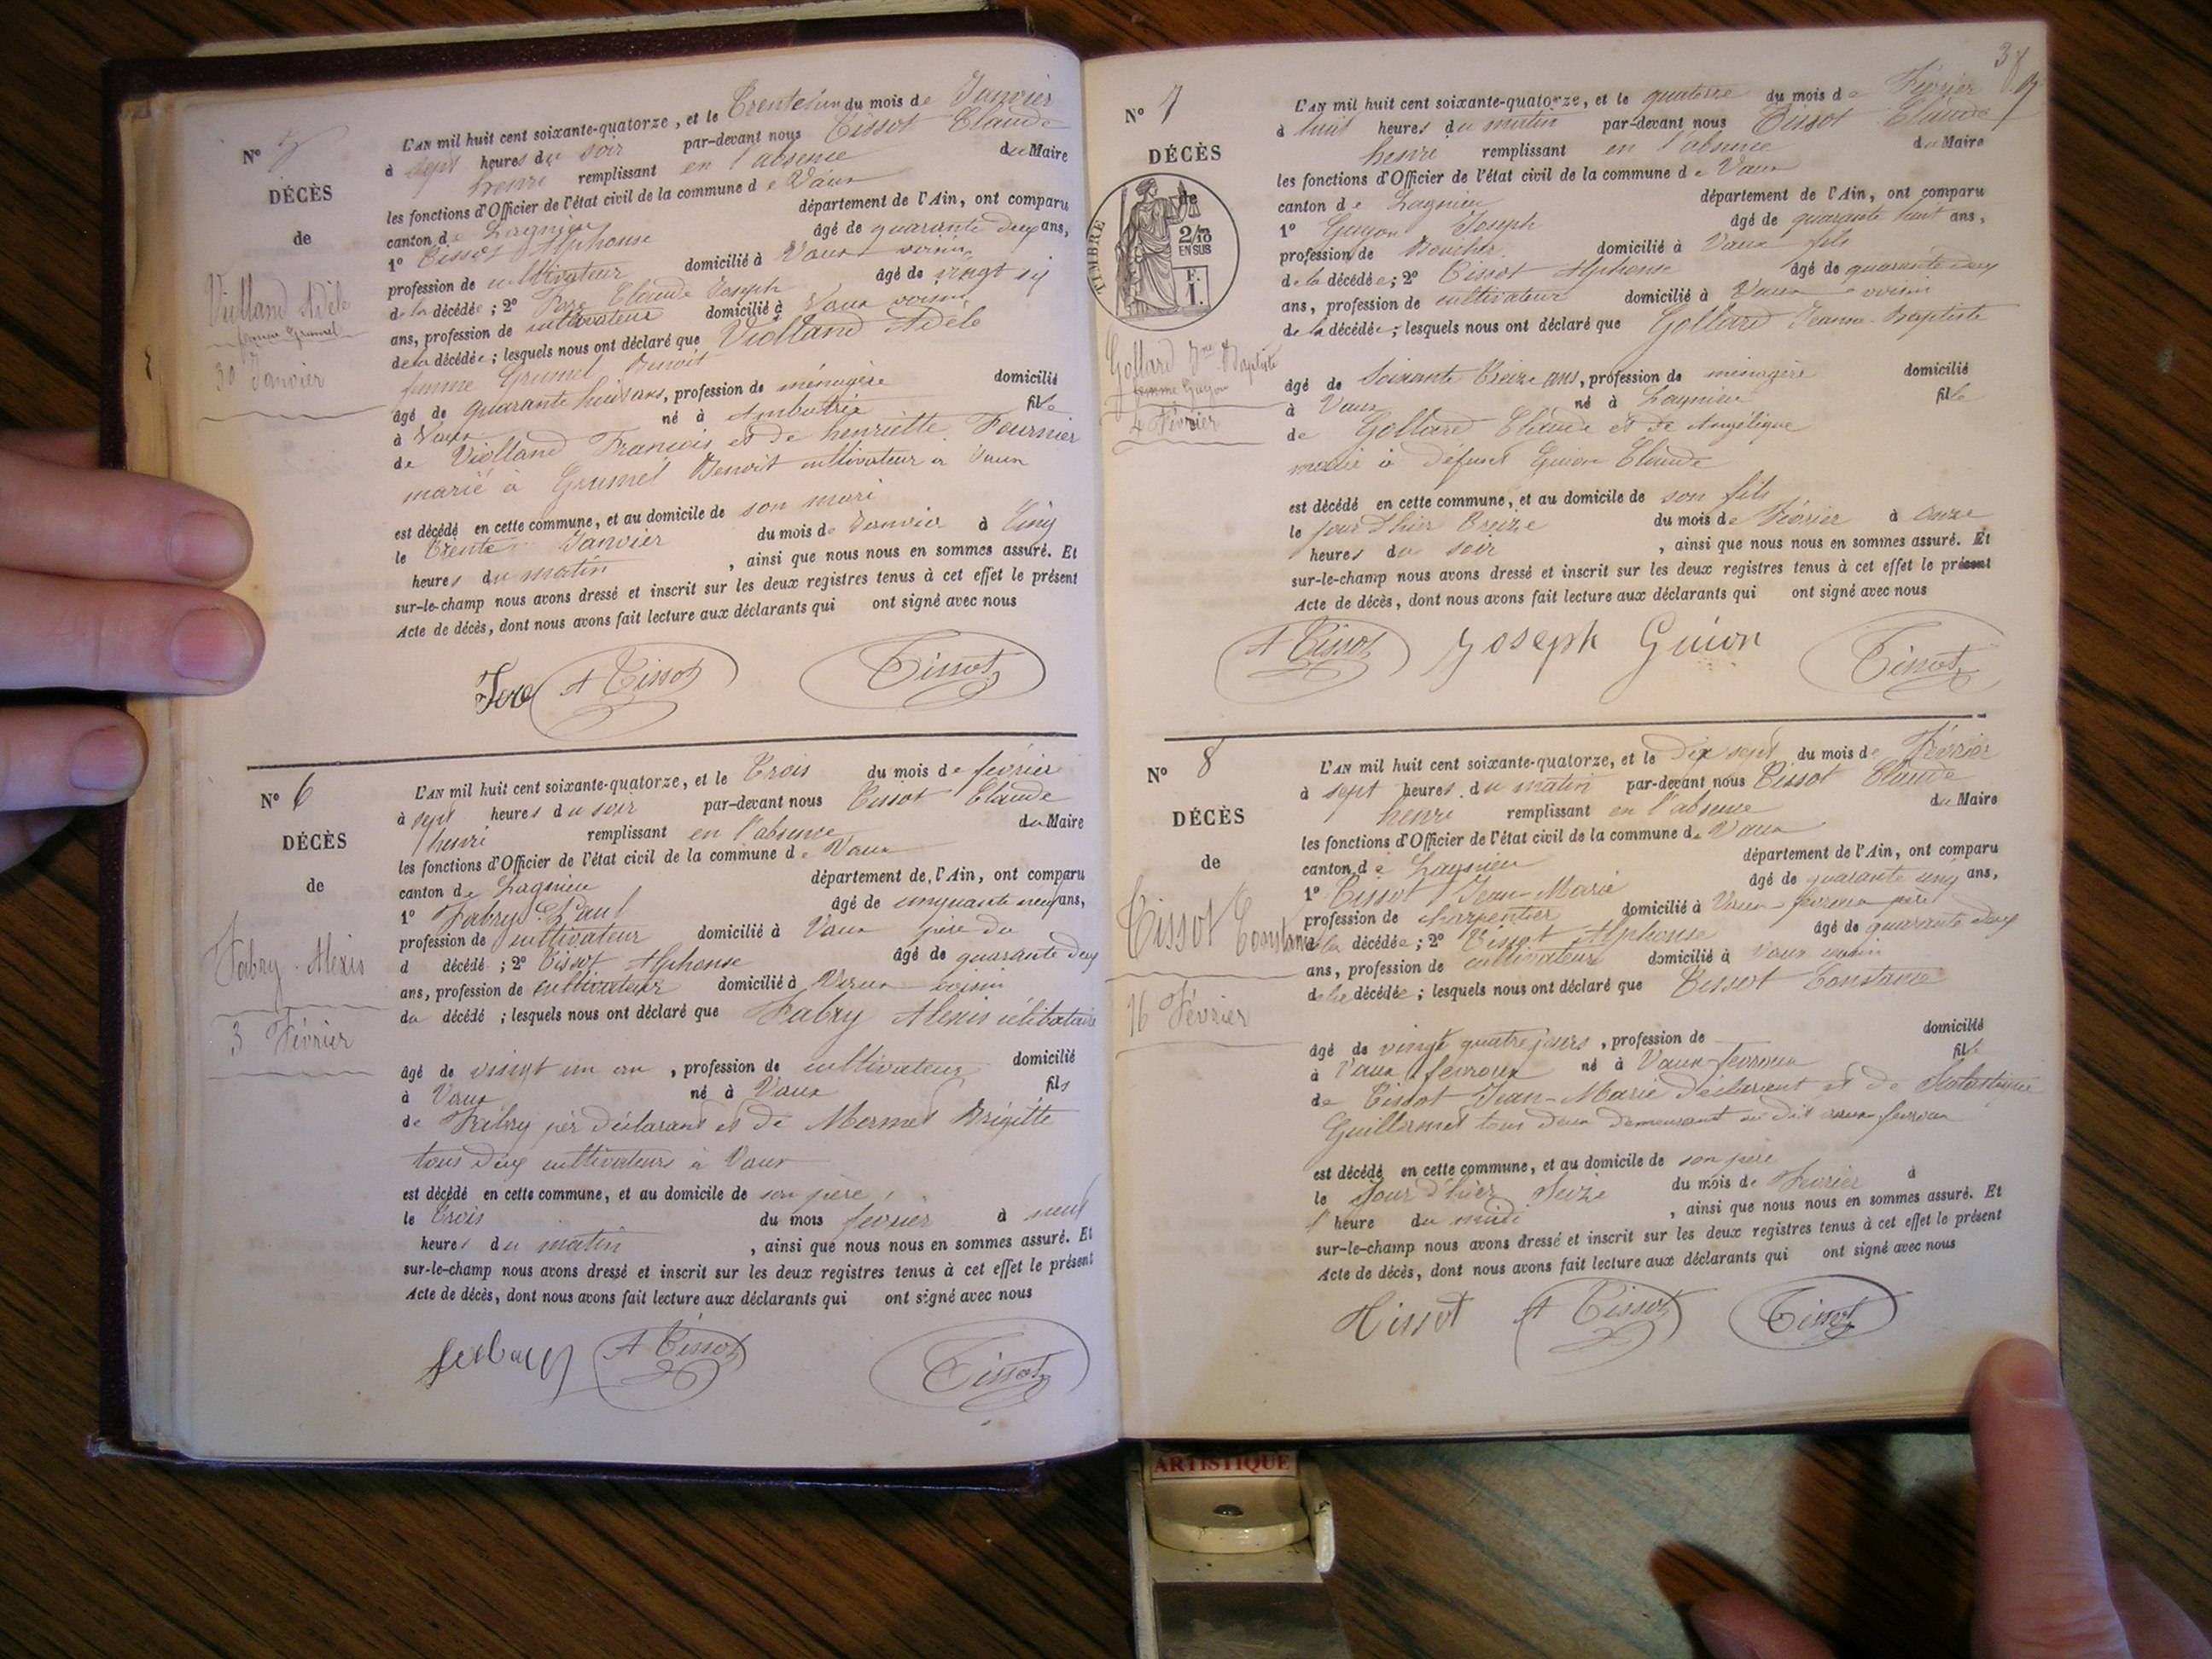 N° 5
DÉCÈS
de
Violland Adèle
femme Grumel
30 Janvier
L'AN mil huit cent soixante-quatorze, et le Trente un du mois de Janvier
à sept heures du soir par-devant nous Tissot Claude
henri remplissant en l'absence du Maire
les fonctions d'Officier de l'état civil de la commune de Vaux
canton de Lagnieu département de l'Ain, ont comparu
1° Tissot Alphonse âgé de quarante deux ans,
profession de cultivateur domicilié à Vaux voisin
de la décédée ; 2° Claude Joseph âgé de vingt six
ans, profession de cultivateur domicilié à Vaux voisin
de la décédée ; lesquels nous ont déclaré que Violland Adèle
femme Grumel Benoit
âgé de quarante huit ans, profession de ménagère domicilié
à Vaux né à Ambutrix fille
de Violland François et de henriette Fournier
marié à Grumel Benoit cultivateur à Vaux
est décédé en cette commune, et au domicile de son mari
le Trente Janvier du mois de Janvier à Cinq
heures du matin , ainsi que nous nous en sommes assuré. Et
sur-le-champ nous avons dressé et inscrit sur les deux registres tenus à cet effet le présent
Acte de décès, dont nous avons fait lecture aux déclarants qui ont signé avec nous
A Tissot Tissot
N° 6
DÉCÈS
de
Fabry Alexis
3 Février
L'AN mil huit cent soixante-quatorze, et le Trois du mois de février
à sept heures du soir par-devant nous Tissot Claude
henri remplissant en l'absence du Maire
les fonctions d'Officier de l'état civil de la commune de Vaux
canton de Lagnieu département de l'Ain, ont comparu
1° Fabry Paul âgé de cinquante neuf ans,
profession de cultivateur domicilié à Vaux père du
d décédé ; 2° Tissot Alphonse âgé de quarante deux
ans, profession de cultivateur domicilié à Vaux voisin
du décédé ; lesquels nous ont déclaré que Fabry Alexis célibataire
âgé de vingt un an , profession de cultivateur domicilié
à Vaux né à Vaux fils
de Fabry père déclarant et de Mermet Brigitte
tous deux cultivateurs à Vaux
est décédé en cette commune, et au domicile de son père
le trois du mois février à neuf
heures du matin , ainsi que nous nous en sommes assuré. Et
sur-le-champ nous avons dressé et inscrit sur les deux registres tenus à cet effet le présent
Acte de décès, dont nous avons fait lecture aux déclarants qui ont signé avec nous
A Tissot Tissot
37
N° 7
DÉCÈS
de
TIMBRE
2/10
EN SUS
F.
1.
Gollard Jne Baptiste
femme Guyon
4 Février
L'AN mil huit cent soixante-quatorze, et le quatorze du mois de Février
à huit heures du matin par-devant nous Tissot Claude
henri remplissant en l'absence du Maire
les fonctions d'Officier de l'état civil de la commune de Vaux
canton de Lagnieu département de l'Ain, ont comparu
1° Guyon Joseph âgé de quarante huit ans,
profession de Boucher domicilié à Vaux fils
de la décédée ; 2° Tissot Alphonse âgé de quarante deux
ans, profession de cultivateur domicilié à Vaux voisin
de la décédée ; lesquels nous ont déclaré que Gollard Jeanne-Baptiste
âgé de Soixante treize ans, profession de ménagère domicilié
à Vaux né à Lagnieu fille
de Gollard Claude et de Angélique
mariée à défunt Guion Claude
est décédé en cette commune, et au domicile de son fils
le jour d'hier Treize du mois de Février à onze
heures du soir , ainsi que nous nous en sommes assuré. Et
sur-le-champ nous avons dressé et inscrit sur les deux registres tenus à cet effet le présent
Acte de décès, dont nous avons fait lecture aux déclarants qui ont signé avec nous
A Tissot Joseph Guion Tissot
N° 8
DÉCÈS
de
Tissot Constance
16 Février
L'AN mil huit cent soixante-quatorze, et le dix sept du mois de Février
à sept heures du matin par-devant nous Tissot Claude
henri remplissant en l'absence du Maire
les fonctions d'Officier de l'état civil de la commune de Vaux
canton de Lagnieu département de l'Ain, ont comparu
1° Tissot Jean-Marie âgé de quarante cinq ans,
profession de charpentier domicilié à Vaux fevroux père
de la décédée ; 2° Tissot Alphonse âgé de quarante deux
ans, profession de cultivateur domicilié à Vaux voisin
de la décédée ; lesquels nous ont déclaré que Tissot Constance
âgé de vingt quatre jours , profession de domicilié
à Vaux fevroux né à Vaux-fevroux fille
de Tissot Jean-Marie déclarant et de Scholastique
Guillermet tous deux demeurant au dit vaux-fevroux
est décédé en cette commune, et au domicile de son père
le Jour d'hier Seize du mois de Février à
l'heure du midi , ainsi que nous nous en sommes assuré. Et
sur-le-champ nous avons dressé et inscrit sur les deux registres tenus à cet effet le présent
Acte de décès, dont nous avons fait lecture aux déclarants qui ont signé avec nous
Tissot A Tissot Tissot
ARTISTIQUE